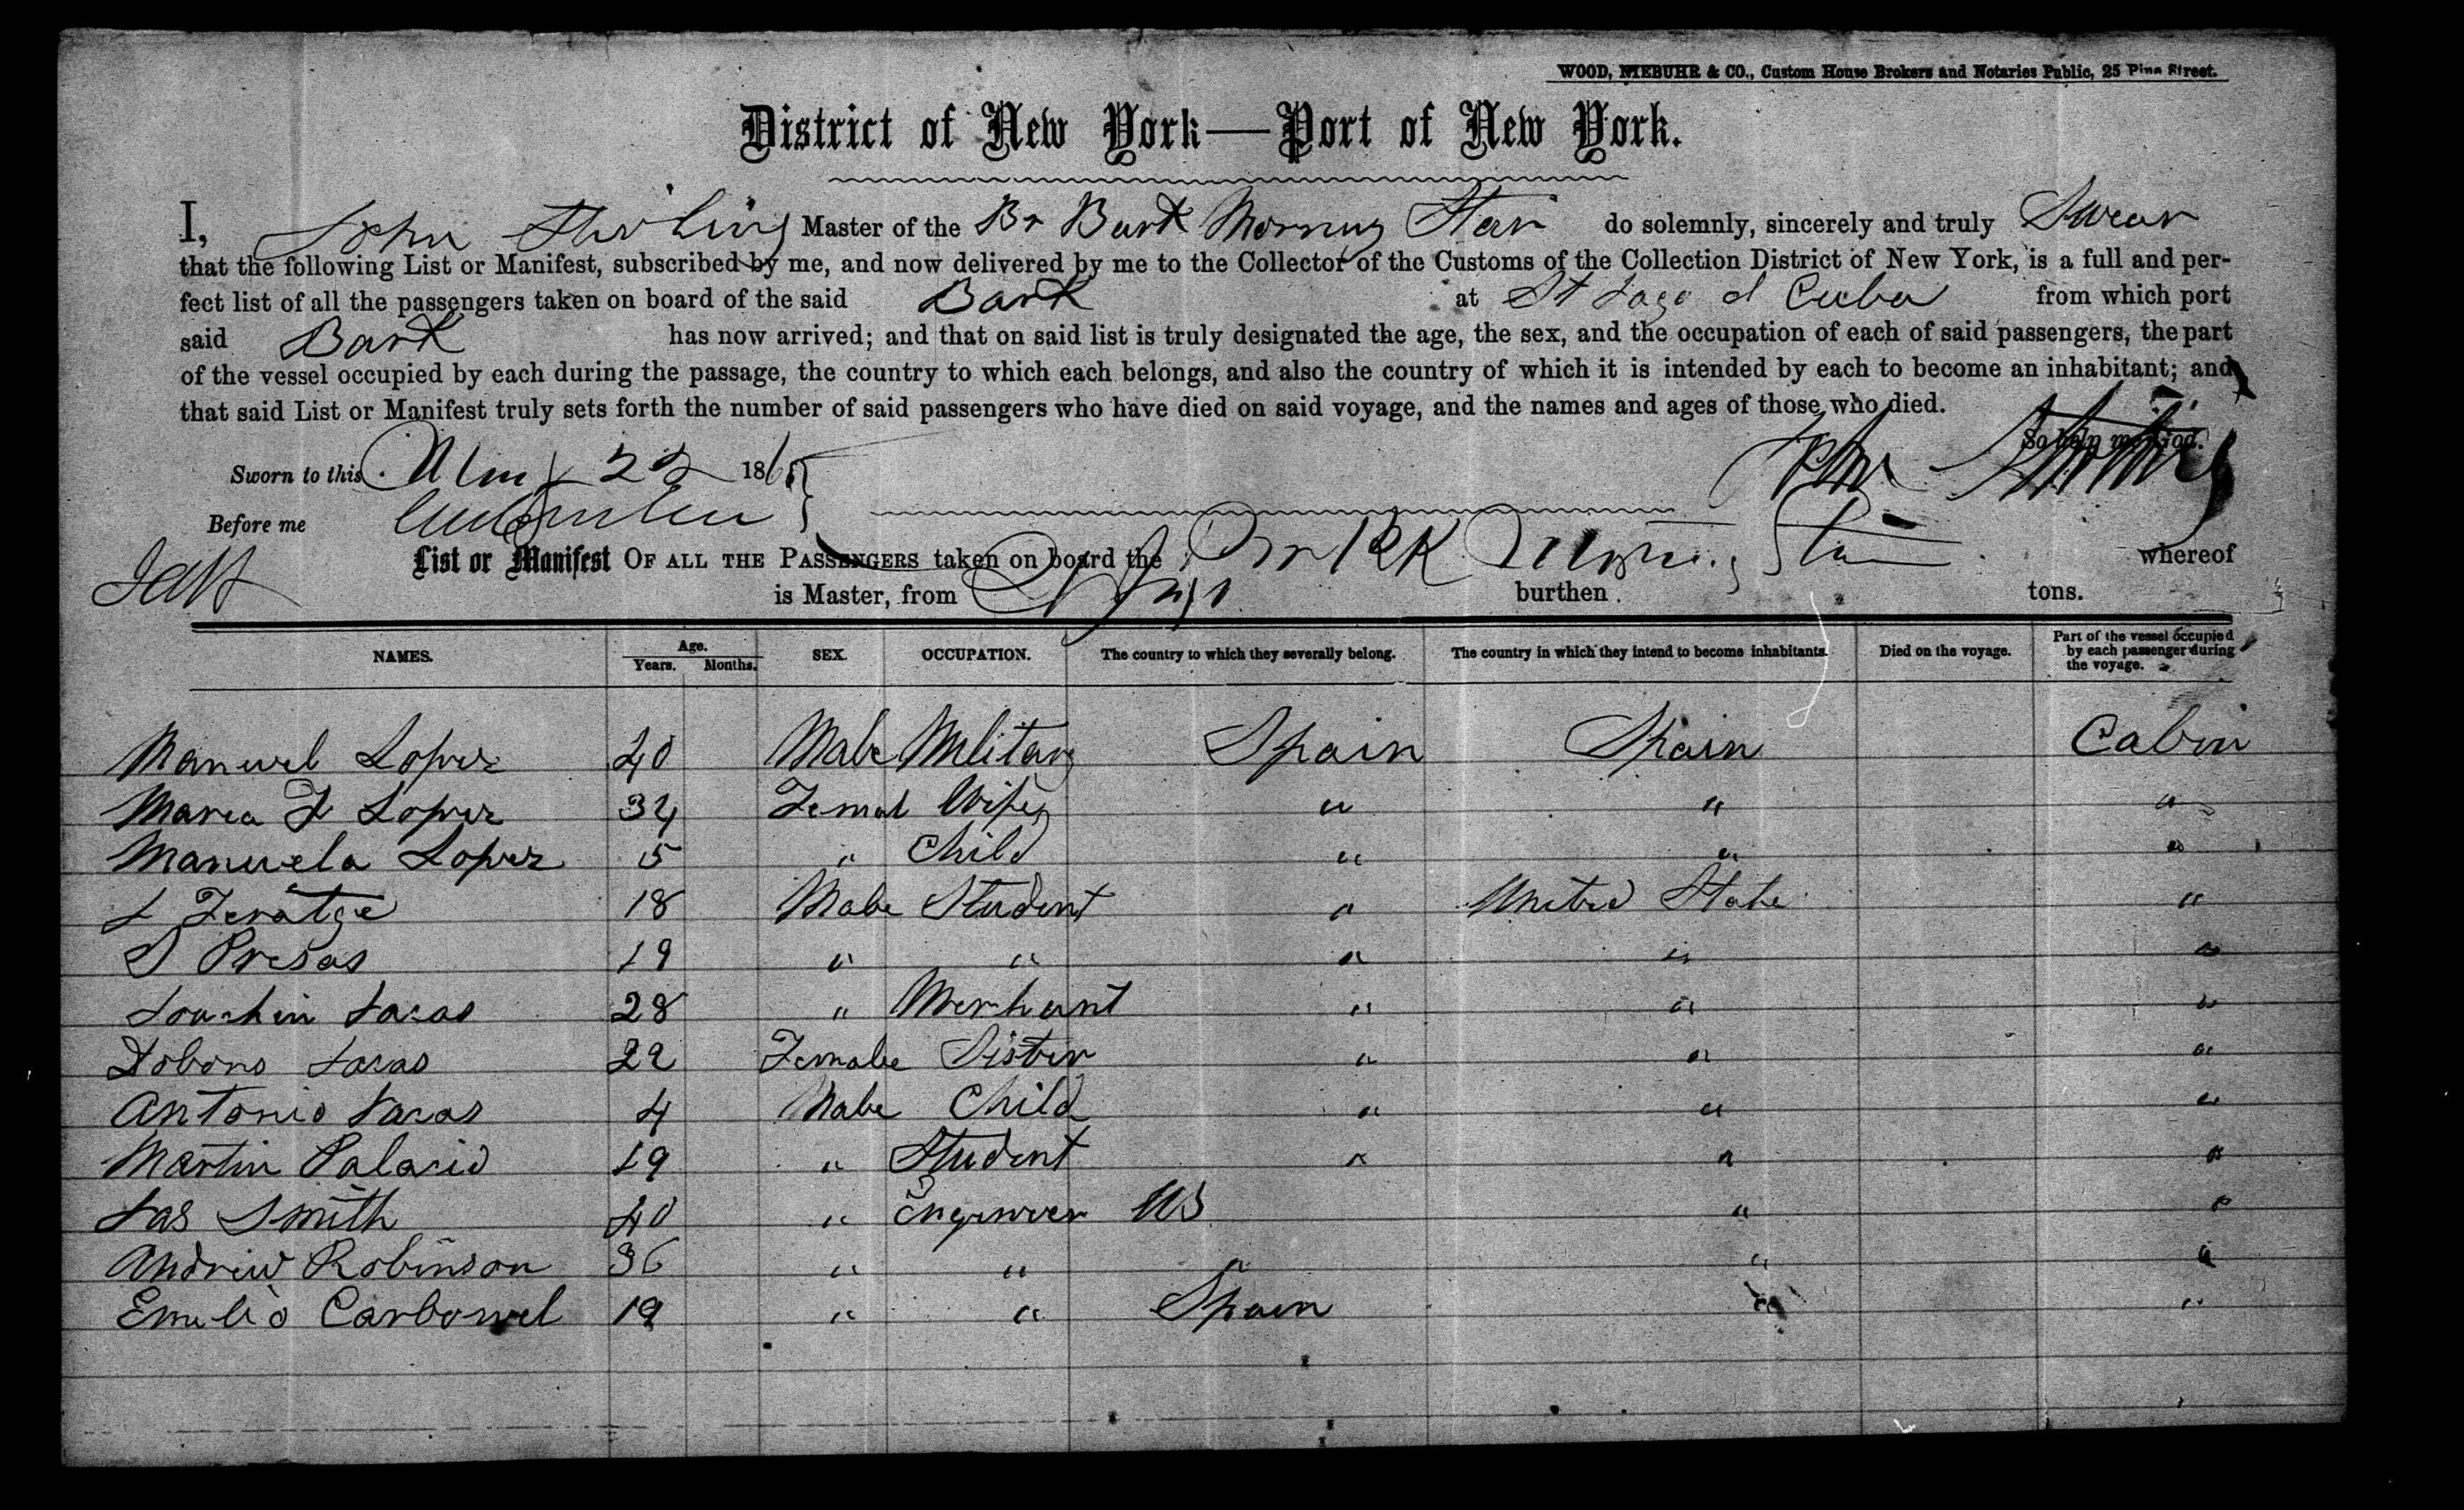 WOOD, NIEBUHR & CO., Custom House Brokers and Notaries Public, 25 Pine Street.
District of New York—Port of New York.
I, John Stirling Master of the Br Bark Morning Star do solemnly, sincerely and truly Swear
that the following List or Manifest, subscribed by me, and now delivered by me to the Collector of the Customs of the Collection District of New York, is a full and per-
fect list of all the passengers taken on board of the said Bark at St Jago d Cuba from which port
said Bark has now arrived; and that on said list is truly designated the age, the sex, and the occupation of each of said passengers, the part
of the vessel occupied by each during the passage, the country to which each belongs, and also the country of which it is intended by each to become an inhabitant; and
that said List or Manifest truly sets forth the number of said passengers who have died on said voyage, and the names and ages of those who died.
So help me God.
Sworn to this May 22 186 John Stirling
Before me
List or Manifest OF ALL THE PASSENGERS taken on board the Br Bk Morning Star whereof
is Master, from St Jago burthen tons.
NAMES. Age. Years. Months. SEX. OCCUPATION. The country to which they severally belong. The country in which they intend to become inhabitants. Died on the voyage. Part of the vessel occupied by each passenger during the voyage.
Manuel Lopez 40 Male Military Spain Spain Cabin
Maria F Lopez 34 Femal Wife " " "
Manuela Lopez 15 " Child " " "
18 Male Student " United State "
S Presas 19 " " " " "
Joachin 28 " Merchant " " "
22 Female Sister " " "
Antonio 4 Male Child " " "
Martin Palacio 19 " Student " " "
Jas Smith 40 " Engineer US " "
Andrew Robinson 36 " " " " "
Emilio Carbonel 19 " " Spain " "